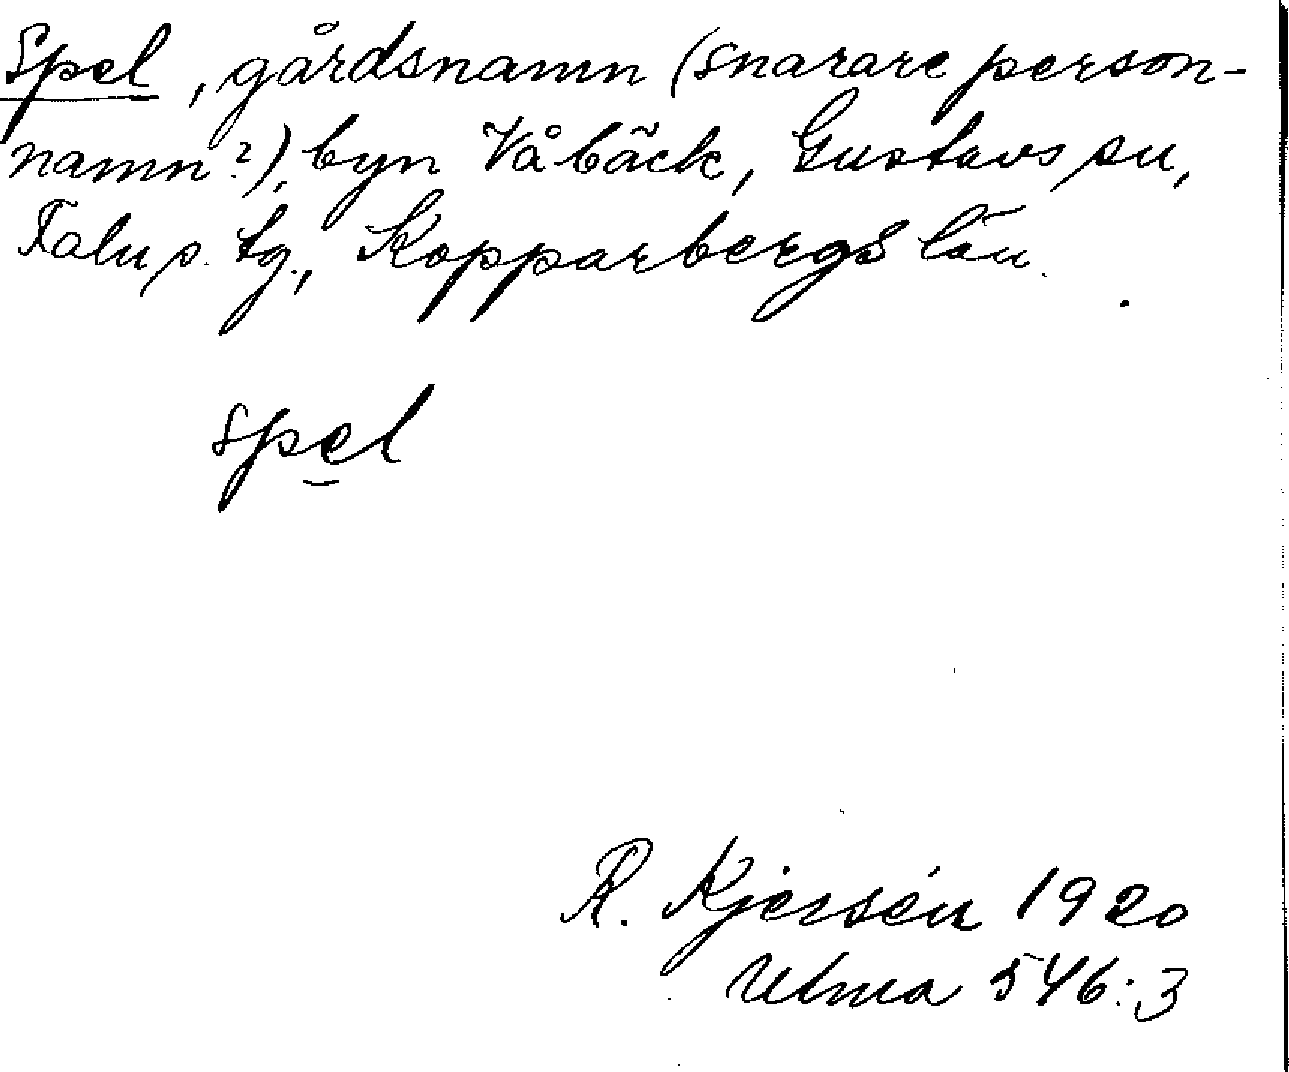 Spel, gårdsnamn (snarare person-
namn?), byn Våbäck, Gustavs sn,
Falu s. tg., Kopparbergs län.
spel
R. Kjersén 1920
Ulma 546:3